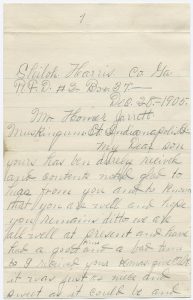 1
Shiloh Harris Co Ga
R.F.D. #2 Box 37
Dec. 28 - 1905
Mr. Homer Jarrett
Muskingum St Indianapolis
My dear son
yours has ben duely receiv
and contents noted glad to
hear from you and to know
that you are well and hope
you remains ditto we are
all well at present and have
had a good and a bad time
I received your
it was just so nice and
sweet as it could be and